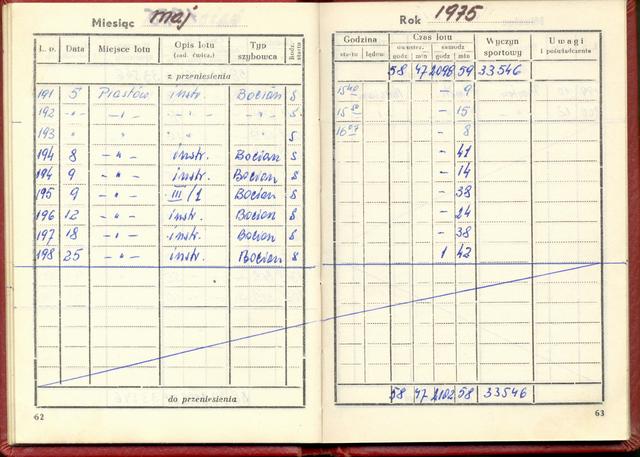 Miesiąc maj
L. p. Data Miejsce lotu Opis lotu (zad. ćwicz.) Typ szybowca Rodz. startu
z przeniesienia
191 5 Piastów instr. Bocian S
192 -"- -"- -"- -"- S
193 " " " " S
194 8 -"- instr. Bocian S
194 9 -"- instr. Bocian S
195 9 -"- III/1 Bocian S
196 12 -"- instr. Bocian S
197 18 -"- instr. Bocian S
198 25 -"- instr. Bocian S
do przeniesienia
62
Rok 1975
Godzina Czas lotu Wyczyn sportowy Uwagi i poświadczenia
startu lądow. dwuster. samodz.
godz min godz min
58 47 2098 59 33546
15 40 - 9
15 50 - 15
16 07 - 8
- 41
- 14
- 38
- 24
- 38
1 42
58 47 2102 58 33546
63